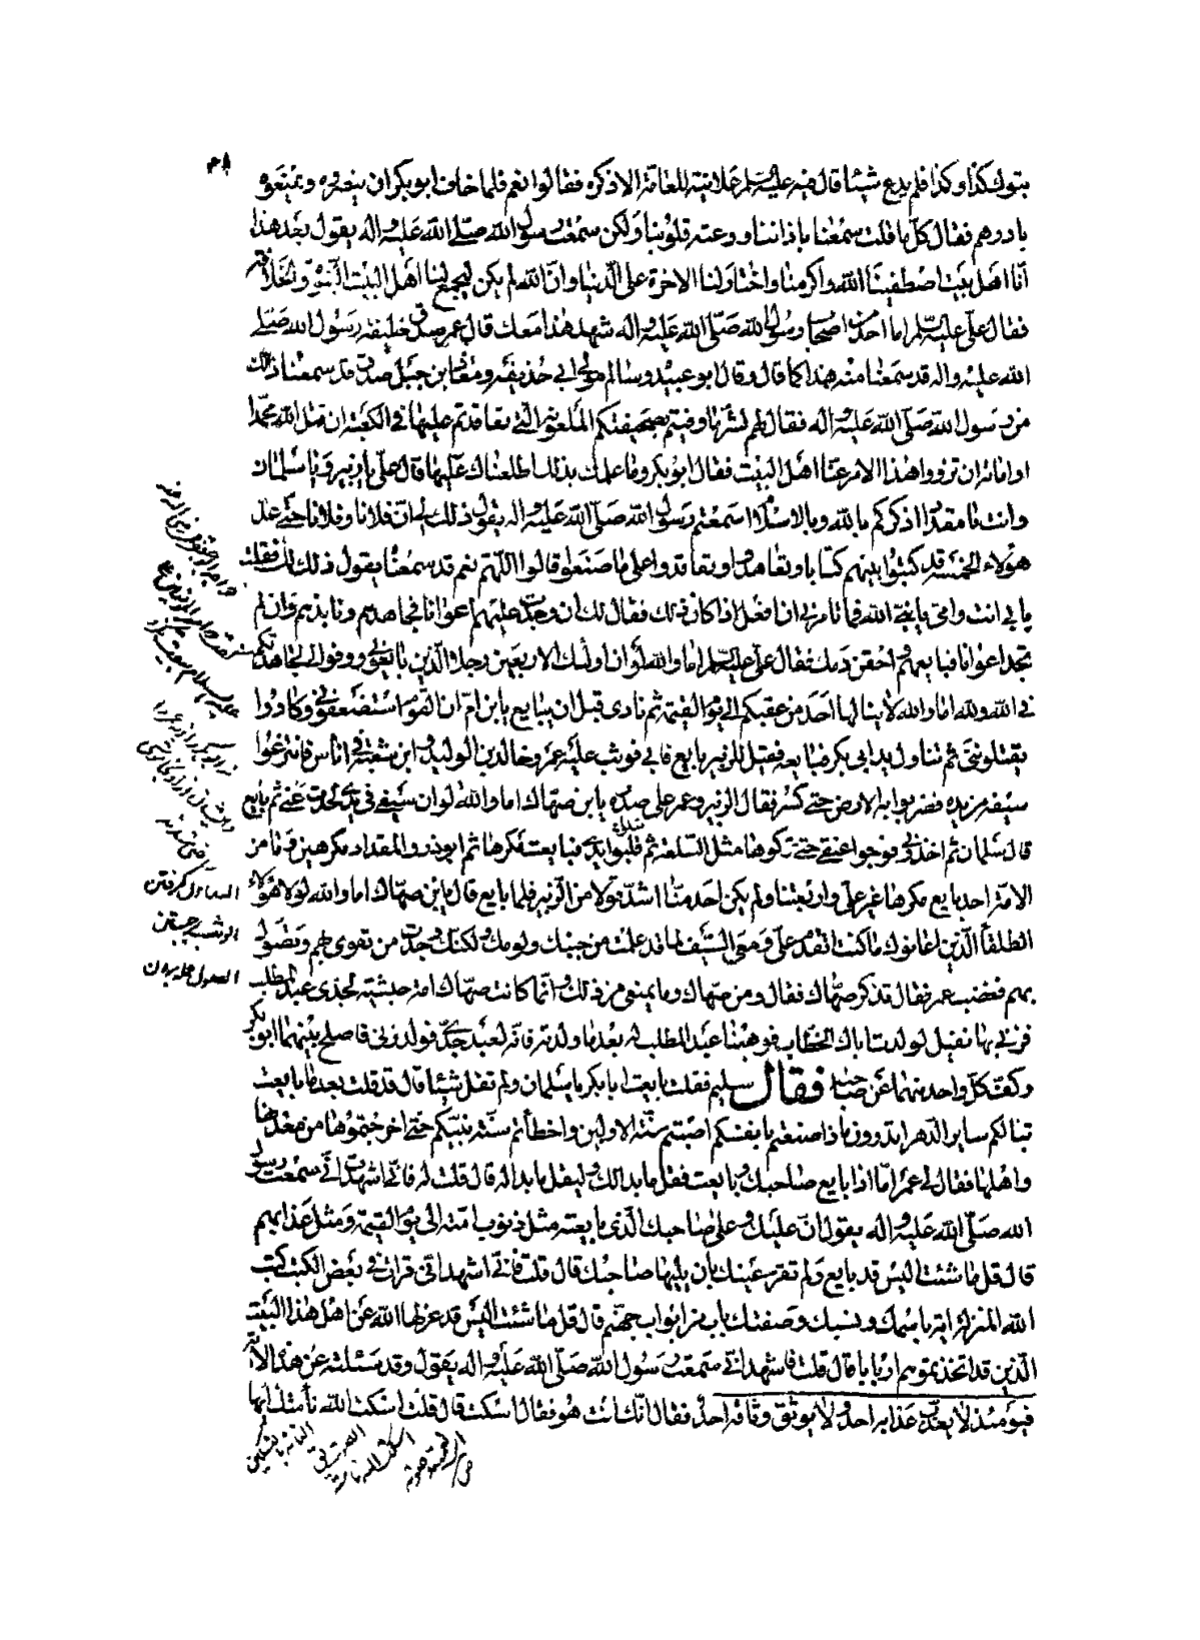 بتوك كذا وكذا فلم يدع شيئا قال فيه عليه السلم علانية للعامة الا ذكره فقالوا نعم فلما خاف ابو بكر ان ينصروه ويمنعوه
بادرهم فقال كل ما قلت سمعناه باذاننا ووعته قلوبنا ولكن سمعت رسول الله صلى الله عليه واله يقول بعد هذا
انا اهل بيت اصطفينا الله واكرمنا واختار لنا الاخرة على الدنيا وان الله لم يكن ليجمع لنا اهل البيت النبوة والخلافة
فقال على عليه السلم اما احد من اصحاب رسول الله صلى الله عليه واله شهد هذا معك قال عمر صدق خليفة رسول الله صلى
الله عليه واله قد سمعنا منه هذا كما قال وقال ابو عبيدة وسالم مولى ابي حذيفة ومعاذ بن جبل صدق قد سمعنا ذلك
من رسول الله صلى الله عليه واله فقال لهم لشد ما وفيتم بصحيفتكم الملعونة التي تعاقدتم عليها في الكعبة ان قتل الله محمدا
او اماته ان تزووا هذا الامر عنا اهل البيت فقال ابو بكر وما علمك بذلك اطلعناك عليها قال على يا زبير ويا سلمان
وانت يا مقداد اذكركم بالله وبالاسلام اسمعتم رسول الله صلى الله عليه واله يقول ذلك لي ان فلانا وفلانا حتى عد
هؤلاء الخمسة قد كتبوا بينهم كتابا وتعاهدوا وتعاقدوا على ما صنعوا قالوا اللهم نعم قد سمعناه يقول ذلك لك فقلت
بابي انت وامي يا نبي الله فما تامرني ان افعل اذا كان ذلك فقال لك ان وجدت عليهم اعوانا فجاهدهم ونابذهم وان لم
تجد اعوانا فبايعهم واحقن دمك فقال على عليه السلم اما والله لو ان اولئك الاربعين رجلا الذين بايعوني ووفوا لي لجاهدتكم
في الله ولله اما والله لا ينالها احد من عقبكم الى يوم القيمة ثم نادى قبل ان يبايع يا بن ام ان القوم استضعفوني وكادوا
يقتلونني ثم تناول يد ابي بكر فبايعه فقيل للزبير بايع فابى فوثب عليه عمر وخالد بن الوليد وابن شعبة في اناس فانتزعوا
سيفه من يده فضربوا به الارض حتى كسر فقال الزبير وعمر على صدره يا بن صهاك اما والله لو ان سيفي في يدي لحدت عني ثم بايع
قال سلمان ثم اخذوني فوجوا عنقي حتى تركوها مثل السلعة ثم فتلوا يدي فبايعت مكرها ثم ابو ذر والمقداد مكرهين وما من
الامة احد بايع مكرها غير على واربعتنا ولم يكن احد منا اشد قولا من الزبير فلما بايع قال يا بن صهاك اما والله لولا هؤلاء
الطلقاء الذين اعانوك ما كنت تقدم على ومعي السيف لما قد علمت من جبنك ولومك ولكنك وجدت من تقوى بهم وتصول
بهم فغضب عمر فقال تذكر صهاك فقال ومن صهاك وما يمنعني من ذلك وانما كانت صهاك امة حبشية لجدي عبد المطلب
فزنى بها نفيل لولدت اباك الخطاب فوهبها عبد المطلب له بعد ما ولدته فانه لعبد جدي فولد زنى فاصلح بينهما ابو بكر
وكف كل واحد منهما عن صاحبه فقال سليم فقلت بايعت ابا بكر يا سلمان ولم تقل شيئا قال قد قلت بعد ما بايعت
تبا لكم ساير الدهر اتدرون ماذا صنعتم بانفسكم اصبتم سنة الاولين واخطاتم سنة نبيكم حتى اخرجتموها من معدنها
واهلها فقال لي عمر اما اذا بايع صاحبك وبايعت فقل ما بدا لك وليقل ما بدا له قال قلت له فاني اشهد اني سمعت رسول
الله صلى الله عليه واله يقول ان عليك وعلى صاحبك الذي بايعته مثل ذنوب امته الى يوم القيمة ومثل عذابهم
قال قل ما شئت اليس قد بايع ولم تقر عينك بان يليها صاحبك قال قلت فاني اشهد اني قرات في بعض الكتب كتب
الله المنزلة اية باسمك ونسبك وصفتك باب من ابواب جهنم قال قل ما شئت اليس قد عزلها الله عن اهل هذا البيت
الذين قد اتخذتموهم اربابا قال قلت فاشهد اني سمعت رسول الله صلى الله عليه واله يقول وقد سئلته عن هذه الاية
فيومئذ لا يعذب عذابه احد ولا يوثق وثاقه احد فقال انك انت هو فقال اسكت قال قلت اسكت الله نأمتك ايها